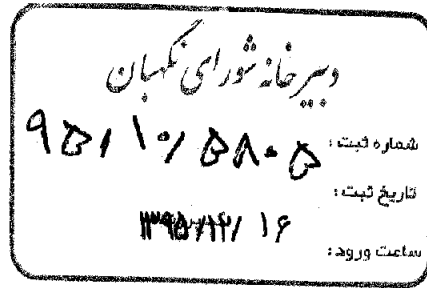 دبیرخانه شورای نگهبان
شماره ثبت: ۹۵/۱۰/۵۸۰۵
تاریخ ثبت:
۱۳۹۵/۱۲/۱۶
ساعت ورود: